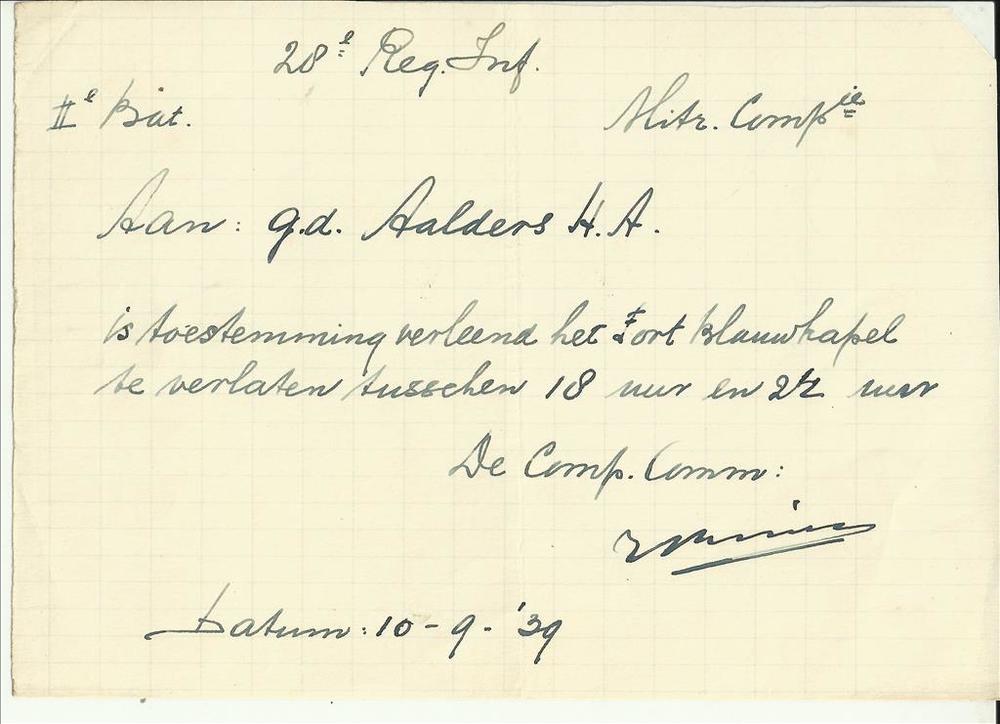 28e Reg. Inf.
IIe Bat. Mitr. Compie
Aan: g.d. Aalders H. A.
is toestemming verleend het Fort Blauwkapel
te verlaten tusschen 18 uur en 22 uur
De Comp. Comm:
Datum: 10-9-'39